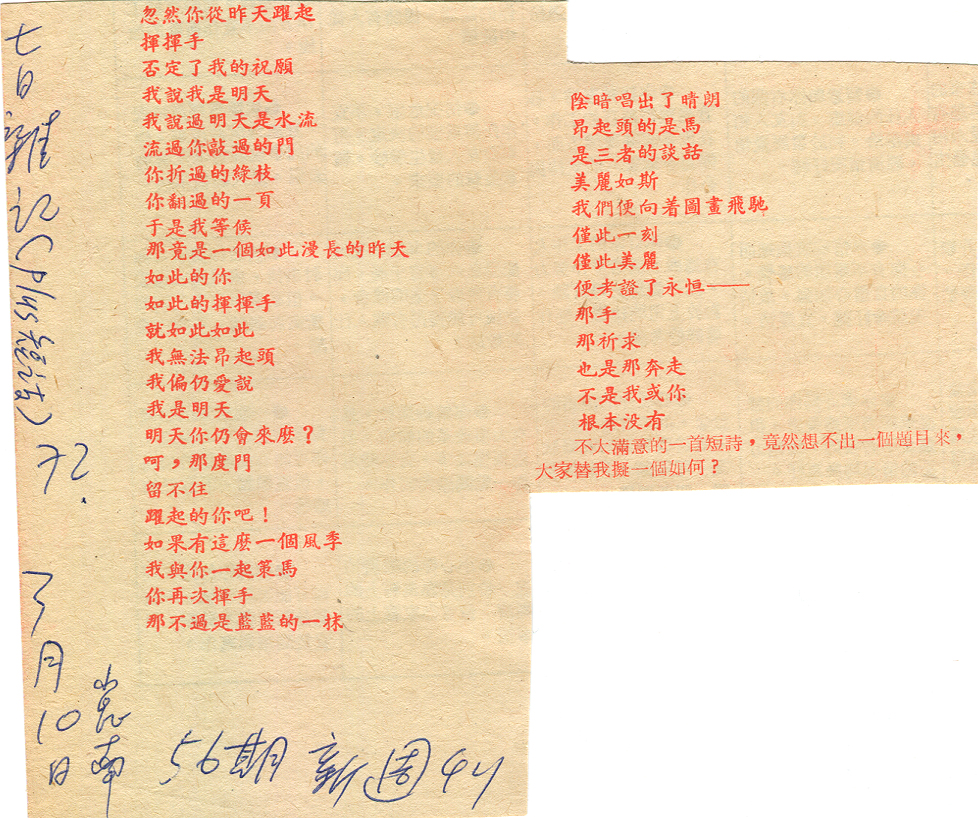 忽然你從昨天躍起
揮揮手
否定了我的祝願
我說我是明天
我說過明天是水流
流過你敲過的門
你折過的綠枝
你翻過的一頁
于是我等候
那竟是一個如此漫長的昨天
如此的你
如此的揮揮手
就如此如此
我無法昂起頭
我偏仍愛說
我是明天
明天你仍會來麽？
呵，那度門
留不住
躍起的你吧！
如果有這麽一個風季
我與你一起策馬
你再次揮手
那不過是藍藍的一抹
陰暗唱出了晴朗
昂起頭的是馬
是三者的談話
美麗如斯
我們便向着圖畫飛馳
僅此一刻
僅此美麗
便考證了永恒——
那手
那祈求
也是那奔走
不是我或你
根本没有
不大滿意的一首短詩，竟然想不出一個題目來，
大家替我擬一個如何？
七日雜記(plus短詩) 72.
3月10日
崑南
56期 新週